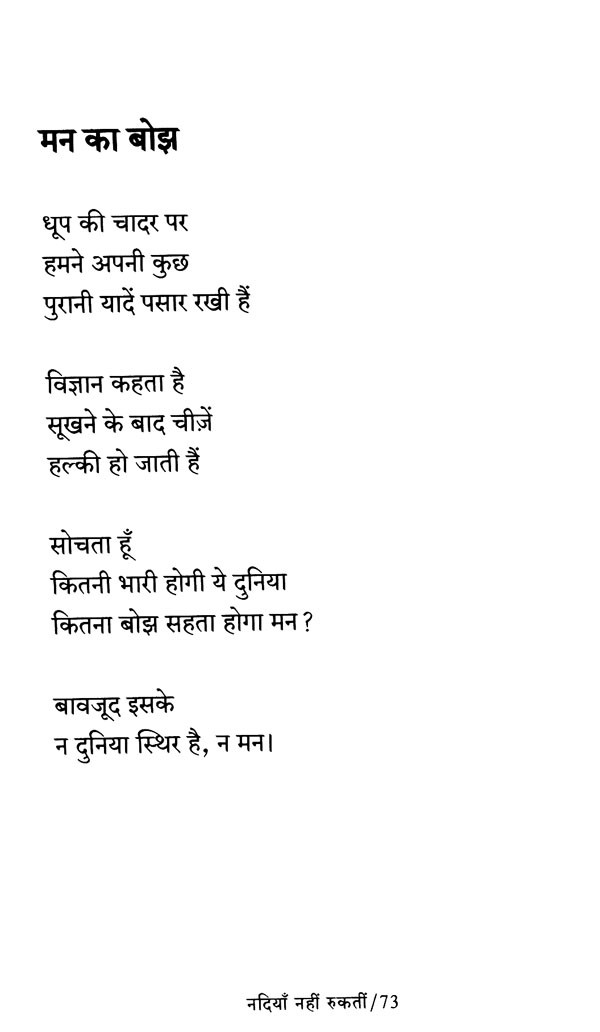 मन का बोझ
धूप की चादर पर
हमने अपनी कुछ
पुरानी यादें पसार रखी हैं
विज्ञान कहता है
सूखने के बाद चीज़ें
हल्की हो जाती हैं
सोचता हूँ
कितनी भारी होगी ये दुनिया
कितना बोझ सहता होगा मन?
बावजूद इसके
न दुनिया स्थिर है, न मन।
नदियाँ नहीं रुकतीं/73